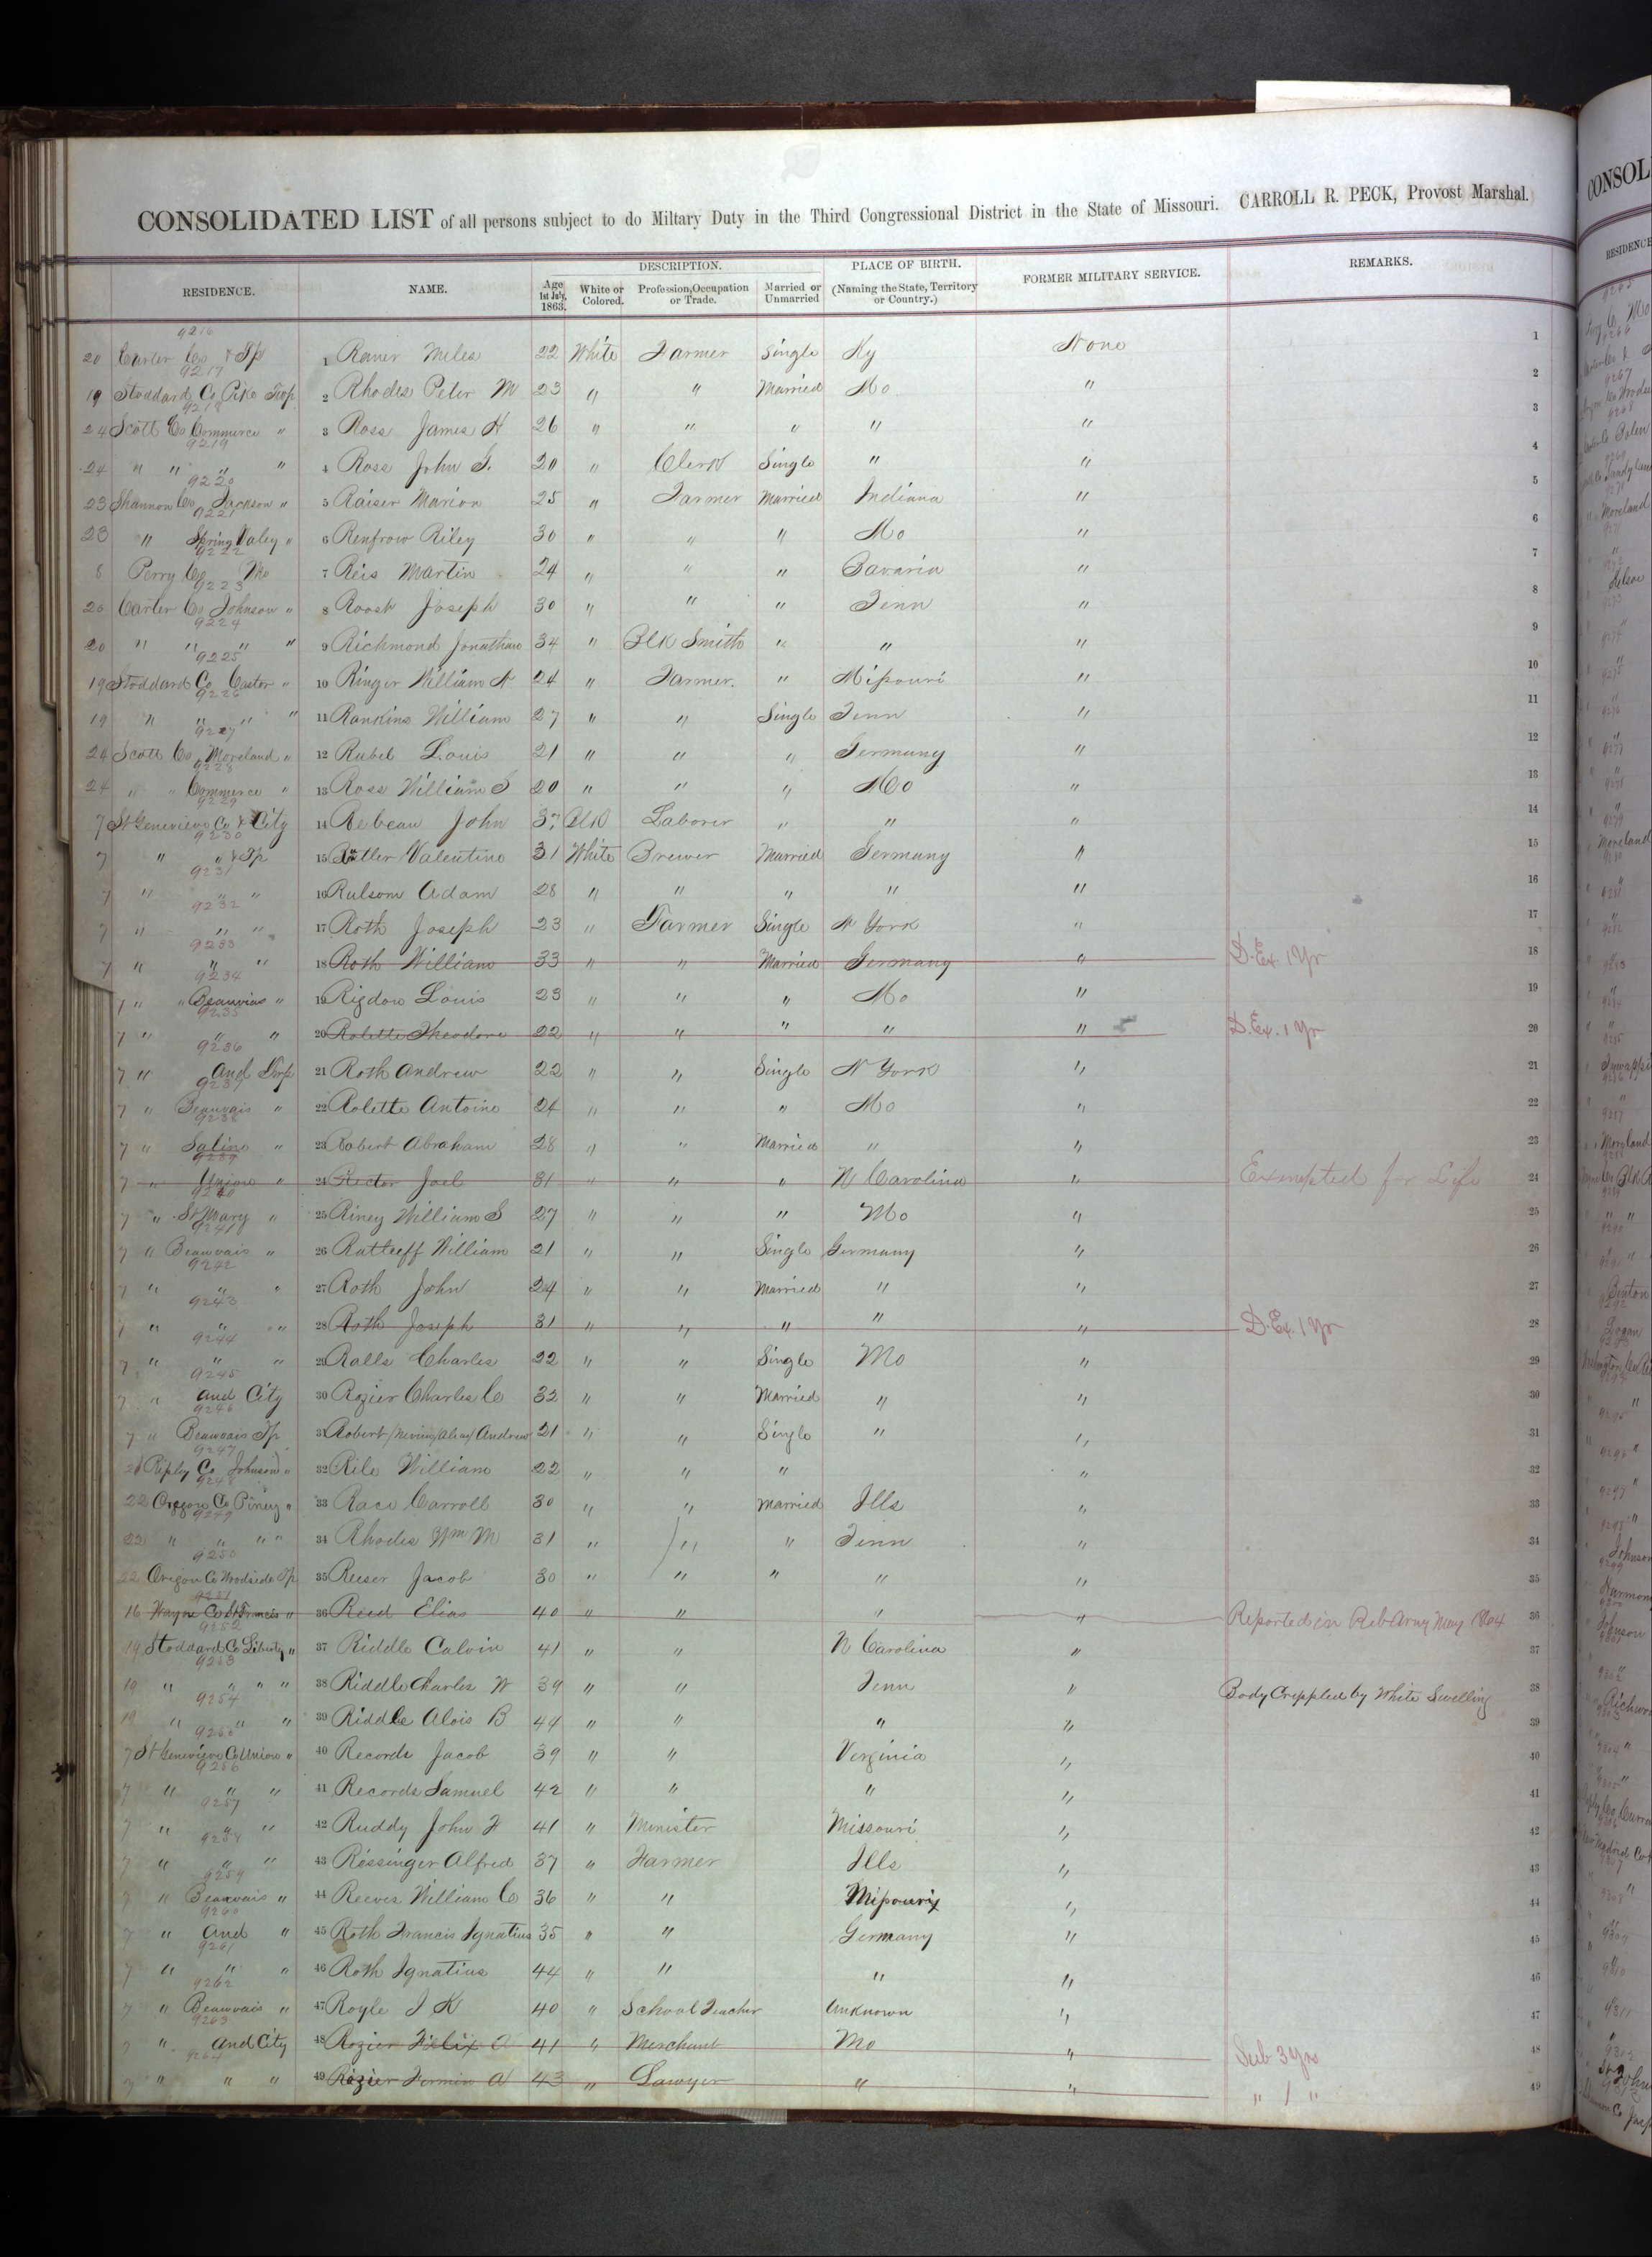 CONSOLIDATED LIST of all persons subject to do Miltary Duty in the Third Congressional District in the State of Missouri. CARROLL R. PECK, Provost Marshal.
RESIDENCE. NAME. DESCRIPTION. PLACE OF BIRTH. FORMER MILITARY SERVICE. REMARKS.
Age 1st July, 1863. White or Colored. Profession, Occupation or Trade. Married or Unmarried (Naming the State, Territory or Country.)
9216
20 Carter Co & Tp 1 Raner Miles 22 White Farmer Single Ky None 1
9217
19 Stoddard Co Pike Twp 2 Rhodes Peter M 23 " " Married Mo " 2
9218
24 Scott Co Commerce " 3 Ross James H 26 " " " " " 3
9219
24 " " " " 4 Ross John G. 20 " Clerk Single " " 4
9220
23 Shannon Co Jackson " 5 Raiser Marion 25 " Farmer Married Indiana " 5
9221
23 " Spring Valey " 6 Renfrow Riley 30 " " " Mo " 6
9222
8 Perry Co Mo 7 Reis Martin 24 " " " Bavaria " 7
9223
20 Carter Co Johnson " 8 Roost Joseph 30 " " " Tenn " 8
9224
20 " " " " 9 Richmond Jonathan 34 " Blk Smith " " " 9
9225
19 Stoddard Co Castor " 10 Ringer William A 24 " Farmer. " Missouri " 10
9226
19 " " " " 11 Rankins William 27 " " Single Tenn " 11
9227
24 Scott Co Moreland " 12 Rubel Louis 21 " " " Germany " 12
9228
24 " " Commerce " 13 Ross William S 20 " " " Mo " 13
9229
7 St Genevieve Co & City 14 Rebeau John 37 Blk Laborer " " " 14
9230
7 " " & Tp 15 Valentine 31 White Brewer Married Germany " 15
9231
7 " " " 16 Rulsom Adam 28 " " " " " 16
9232
7 " " " 17 Roth Joseph 23 " Farmer Single N York " 17
9233
7 " " " 18 Roth William 33 " " Married Germany " D. Ex. 1 Yr 18
9234
7 " " Beauvias " 19 Rigdon Louis 23 " " " Mo " 19
9235
7 " " " 20 Rolette Theodore 22 " " " " " D. Ex. 1 Yr 20
9236
7 " And Twp 21 Roth Andrew 22 " " Single N York " 21
9237
7 " Beauvais " 22 Rolette Antoine 24 " " " Mo " 22
9238
7 " Saline " 23 Robert Abraham 28 " " Married " " 23
9239
7 " Union " 24 Rector Joel 31 " " " N Carolina " Exempted for Life 24
9240
7 " St Mary " 25 Riney William S 27 " " " Mo " 25
9241
7 " Beauvais " 26 Ratteeff William 21 " " Single Germany " 26
9242
7 " " " 27 Roth John 24 " " Married " " 27
9243
7 " " " " 28 Roth Joseph 31 " " " " " D. Ex. 1 Yr 28
9244
7 " " " 29 Ralls Charles 22 " " Single Mo " 29
9245
7 " and City 30 Rozier Charles C 32 " " Married " " 30
9246
7 " Beauvais Tp 31 Robert /Nevins/Alias/ Andrew 21 " " Single " " 31
9247
21 Riply Co Johnson " 32 Rile William 22 " " " " 32
9248
22 Oregon Co Piney " 33 Race Carroll 30 " " Married Ills " 33
9249
22 " " " " 34 Rhodes Wm M 31 " " " Tenn " 34
9250
22 Oregon Co Woodside Tp 35 Reeser Jacob 30 " " " " " 35
9251
16 Wayne Co St Francis " 36 Reed Elias 40 " " " " Reported in Reb Army May 1864 36
9252
19 Stoddard Co Liberty " 37 Riddle Calvin 41 " " N Carolina " 37
9253
19 " " " " 38 Riddle Charles W 39 " " Tenn " Body Crippled by White Swelling 38
9254
19 " " " 39 Riddle Alois B 44 " " " " 39
9255
7 St Genevieve Co Union " 40 Records Jacob 39 " " Virginia " 40
9256
7 " " " 41 Records Samuel 42 " " " " 41
9257
7 " " " 42 Ruddy John F 41 " Minister Missouri " 42
9258
7 " " " 43 Rissinger Alfred 37 " Farmer Ills " 43
9259
7 " Beauvais " 44 Reeves William C 36 " " Missouri " 44
9260
7 " And " 45 Roth Francis Ignatius 35 " " Germany " 45
9261
7 " " " 46 Roth Ignatius 44 " " " " 46
9262
7 " Beauvais " 47 Royle J K 40 " School Teacher Unknown " 47
9263
7 " and City 48 Rozier Felix A 41 " Merchant Mo " Sub 3 yrs 48
9264
7 " " " 49 Rozier Firmin A 43 " Lawyer " " " 1 " 49